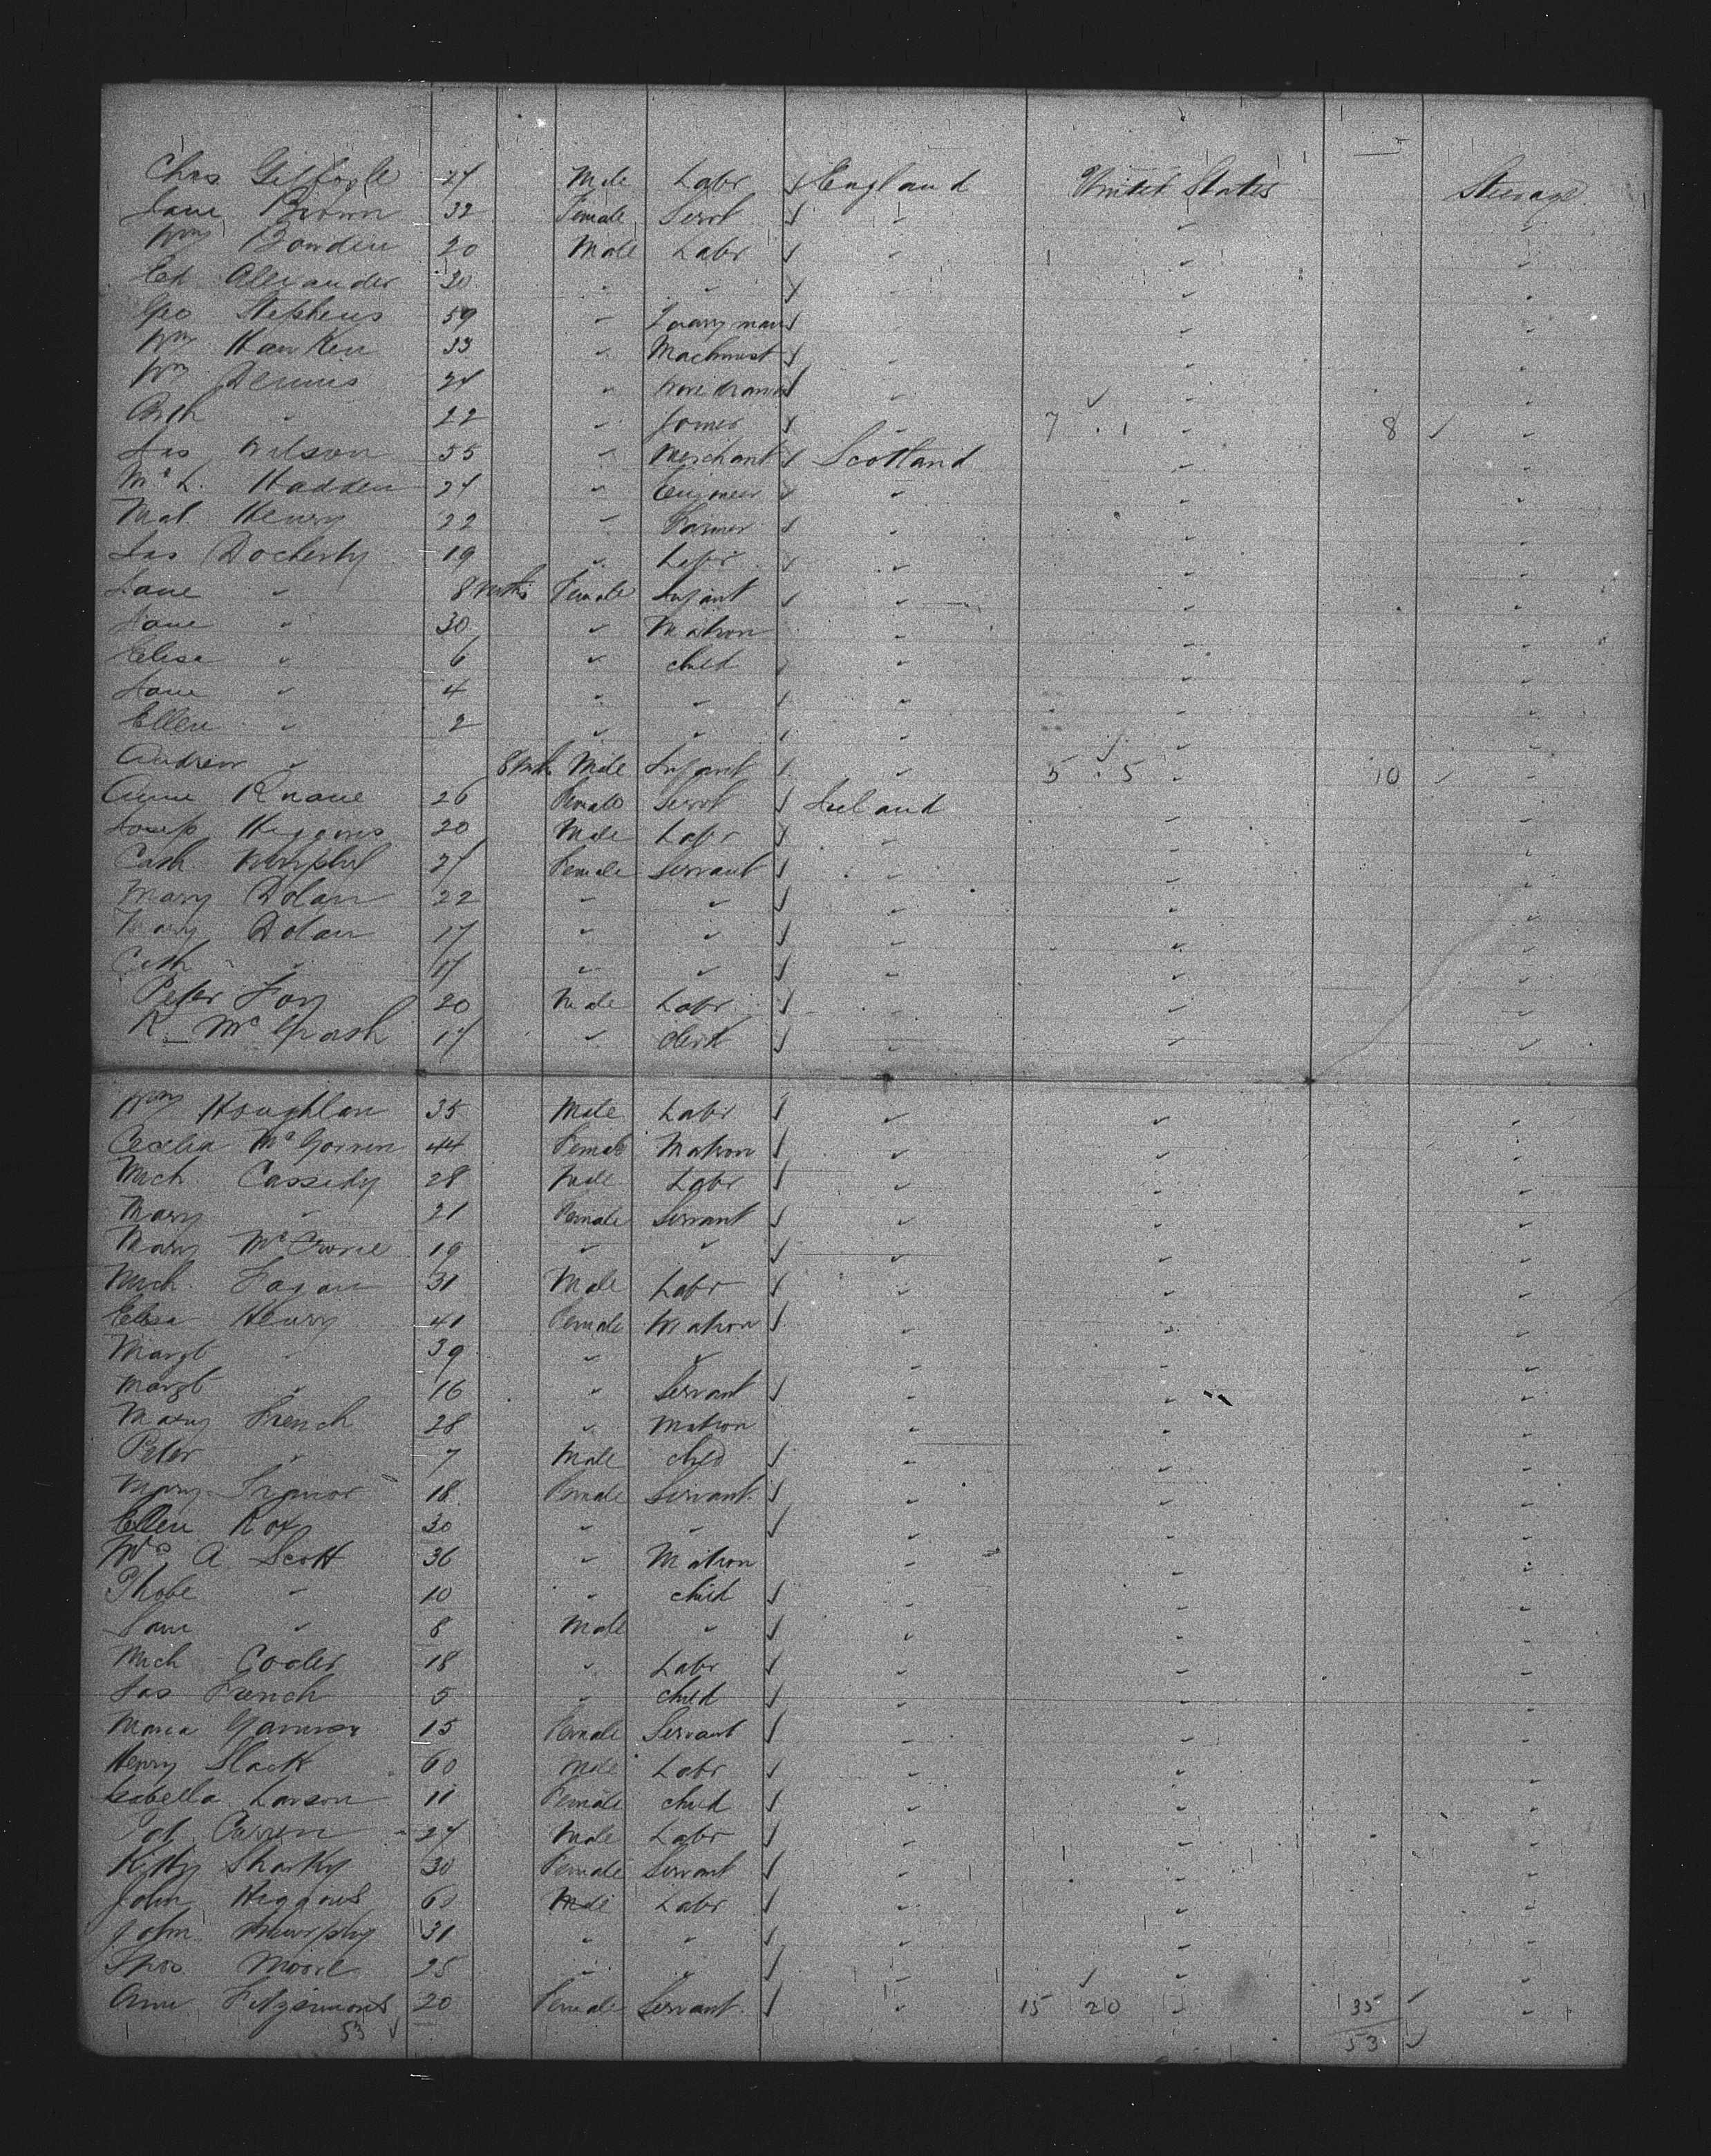 Chas Gilfoyle 24 Male Labr England United States Steerage
Jane Brown 32 Female Servt " " "
Wm Bowden 20 Male Labr " " "
Ed Alexander 30 " " " "
Geo Stephens 59 " Quarryman " "
Wm Hawken 33 " Machinist " " "
Wm Dennis 24 " " " "
" 22 " Joiner " 7 . 1 " 8 "
Jas Wilson 55 " Merchant Scotland " "
Mr L. Hadden 24 " Engineer " " "
Mat Henry 22 " Farmer " " "
Jas Docherty 19 " Labr " " "
Jane " 8 Mths Female Infant " " "
Jane " 30 " Matron " " "
Elisa " 6 " child " " "
Jane " 4 " " " " "
Ellen " 2 " " " " "
Andrew " 8 Mth Male Infant " 5 . 5 " 10 "
Anne Knave 26 Female Servt Ireland " "
Joseph Higgins 20 Male Labr " " "
Cath 21 Female Servant " " "
Mary Dolan 22 " " " " "
Mary Dolan 17 " " " " "
Cath " 17 " " " " "
Peter Foy 20 Male Labr " " "
R. McGrash 17 " Clerk " " "
Wm Houghlan 35 Male Labr " " "
Cecelia McGorren 44 Female Matron " " "
Mich Cassidy 28 Male Labr " " "
Mary " 21 Female Servant " " "
Mary McCrone 19 " " " " "
Mich. Fagan 31 Male Labr " " "
Elisa Henry 41 Female Matron " " "
Margt " 39 " " " " "
Margt " 16 " Servant " " "
Mary French 28 " Matron " " "
Peter " 7 Male child " " "
Mary Traynor 18 Female Servant " " "
Ellen Roy 30 " " " " "
Mrs A Scott 36 " Matron " " "
Phobe " 10 " child " " "
Sam " 8 Male " " " "
Mich Cooler 18 " Labr " " "
Jas French 5 " child " " "
Maria 15 Female Servant " " "
Henry Slack 60 Male Labr " " "
Isabella Larson 11 Female child " " "
Pat Curren 24 Male Labr " " "
Kitty Sharky 30 Female Servant " " "
John Higgins 60 Male Labr " " "
John Murphy 31 " " " " "
Thos Moore 25 " " " " "
Ann Fitzsimons 20 Female Servant " 15 20 " 35 "
53 53